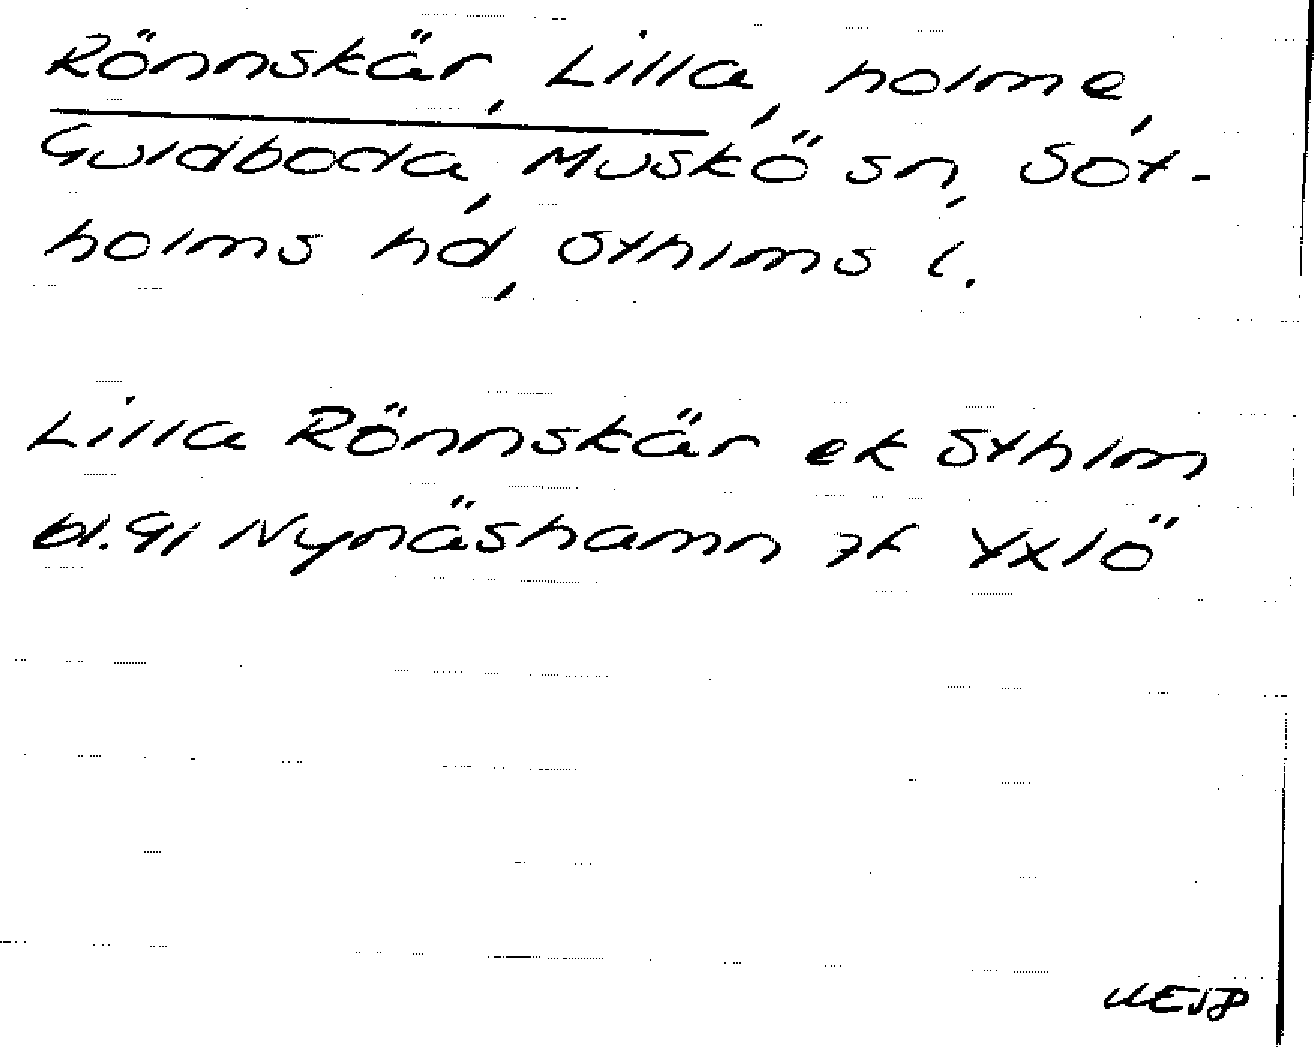 Rönnskär, Lilla, holme,
Guldboda, Muskö sn, Sot-
holms hd, Sthlms l.
Lilla Rönnskär ek Sthlm
bl. 91 Nynäshamn jf Yxlö